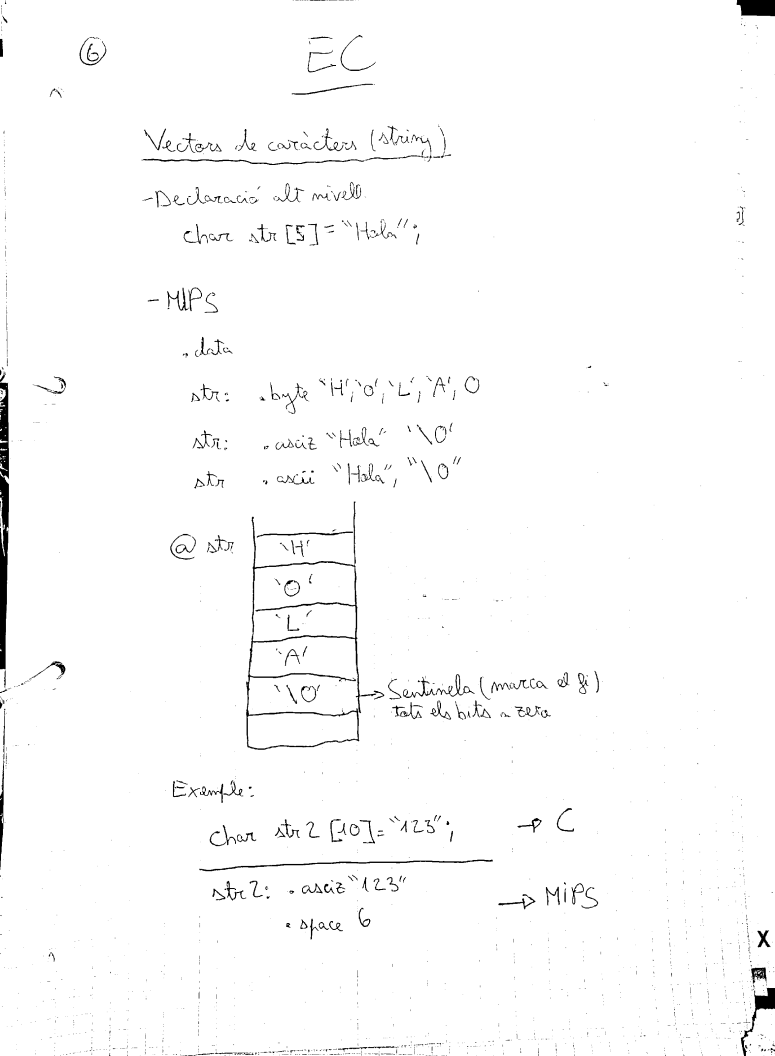 6
EC
Vectors de caràcters (string)
-Declaració alt nivell.
char str [5] = "Hola";
- MIPS
.data
str: .byte 'H','O','L','A', 0
str: .asciz "Hola" '\0'
str .ascii "Hola", "\0"
@ str
'H'
'O'
'L'
'A'
'\0' → Sentinela (marca el fi)
tots els bits a zero
Exemple:
char str 2 [10] = "123"; → C
str 2: .asciz "123"
→ MIPS
.space 6
X